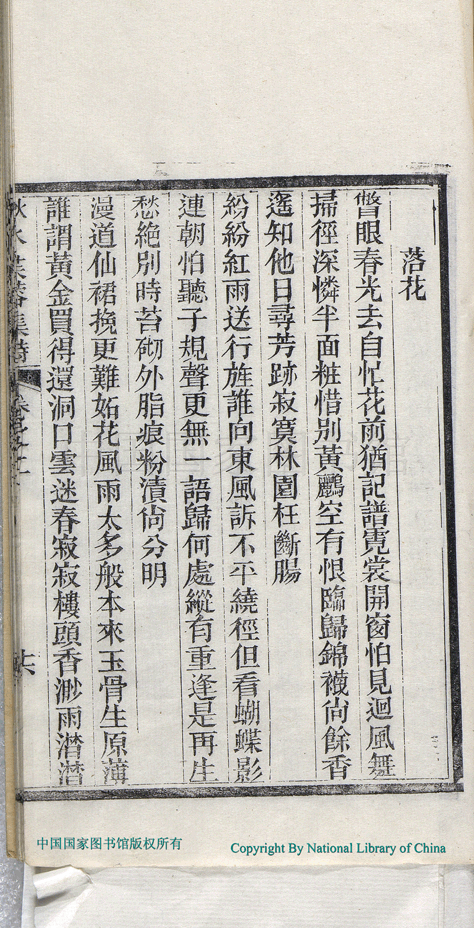 落花
瞥眼春光去自忙花前猶記譜霓裳開窗怕見迴風舞
掃徑深憐半面粧惜別黃鸝空有恨臨歸錦襪尙餘香
遙知他日尋芳跡寂寞林園枉斷腸
紛紛紅雨送行旌誰向東風訴不平繞徑但看蝴蝶影
連朝怕聽子規聲更無一語歸何處縱有重逢是再生
愁絕別時苔砌外脂痕粉漬尙分明
漫道仙裙挽更難妬花風雨太多般本來玉骨生原薄
誰謂黃金買得還洞口雲迷春寂寂樓頭香渺雨潸潸
秋水芙蓉集詩
中国国家图书馆版权所有
Copyright By National Library of China